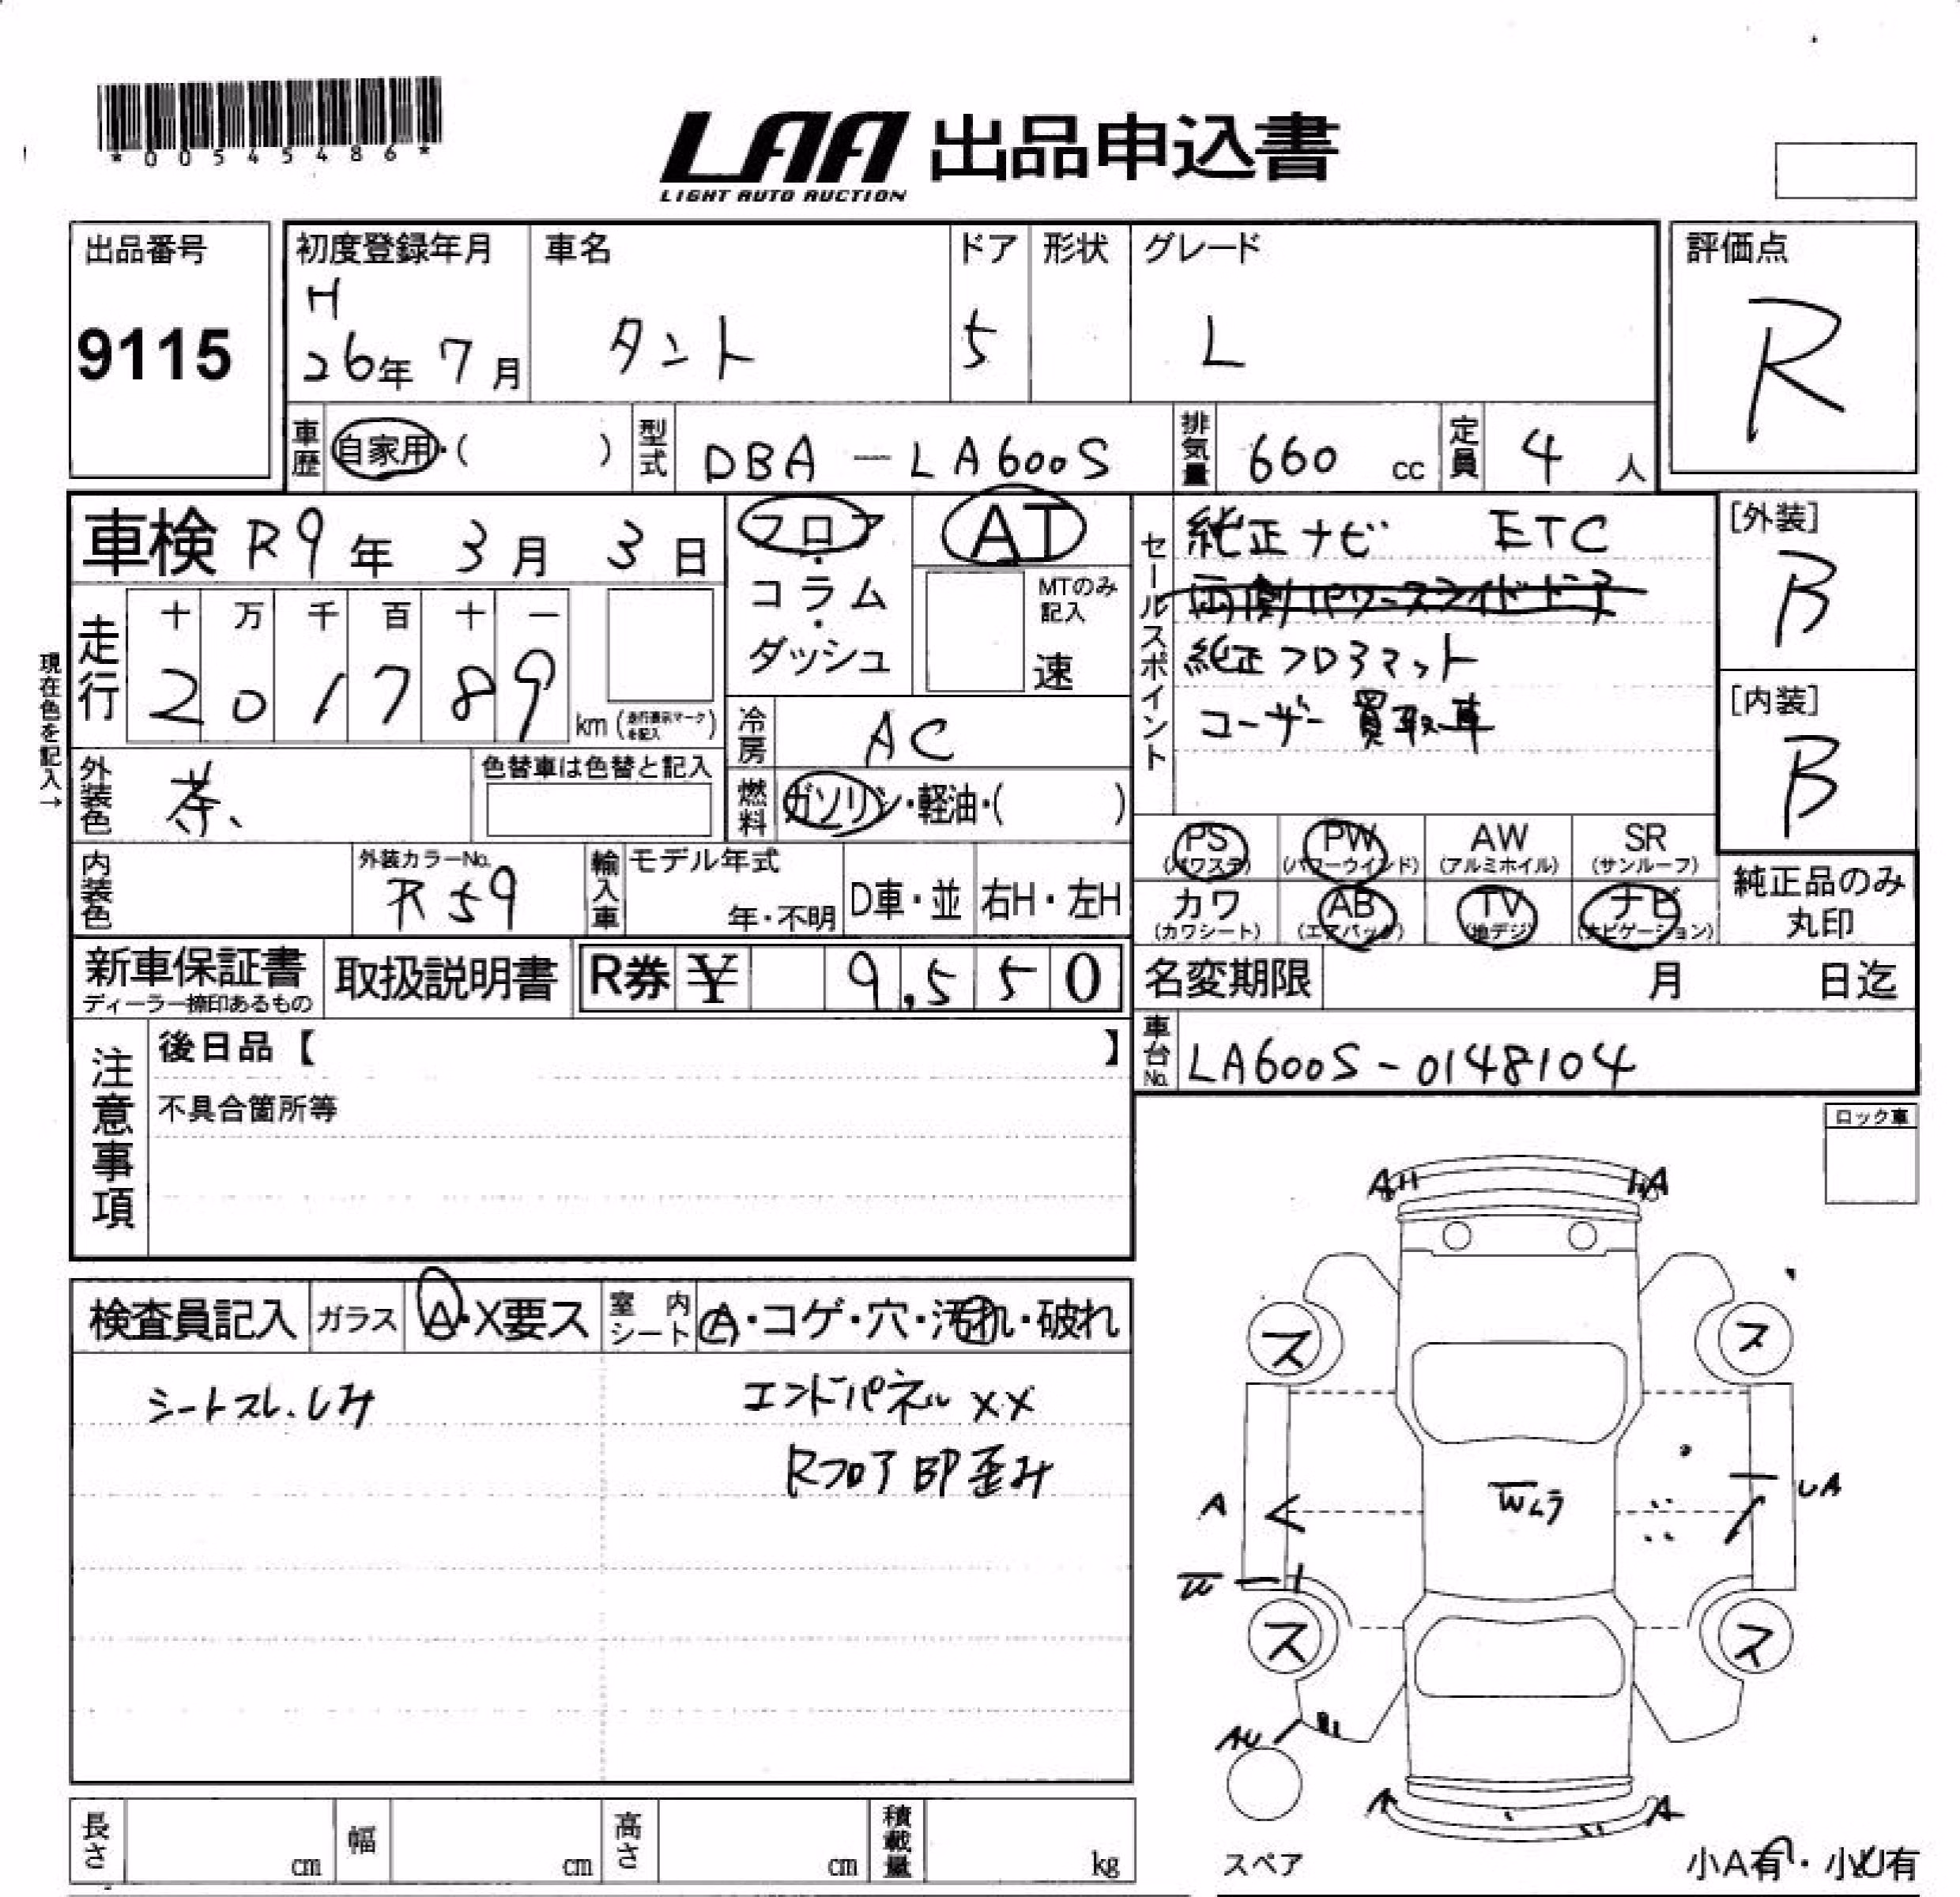 *00545486*
LAA 出品申込書
LIGHT AUTO AUCTION
出品番号
9115
初度登録年月
H
26年 7月
車名
タント
ドア
5
形状
グレード
L
評価点
R
車歴 自家用・( )
型式 DBA-LA600S
排気量 660 cc
定員 4 人
車検 R9年 3月 3日
現在色を記入→
走行
十 万 千 百 十 一
2 0 1 7 8 9
km (走行表示マークを記入)
フロア・コラム・ダッシュ
AT
MTのみ記入
速
冷房 AC
燃料 ガソリン・軽油・( )
セールスポイント
純正ナビ ETC
両側パワースライドドア
純正フロアマット
ユーザー買取車
[外装]
B
[内装]
B
外装色 茶、
色替車は色替と記入
内装色
外装カラーNo.
R59
輸入車
モデル年式
年・不明
D車・並
右H・左H
PS (パワステ)
PW (パワーウインド)
AW (アルミホイル)
SR (サンルーフ)
カワ (カワシート)
AB (エアバック)
TV (地デジ)
ナビ (ナビゲーション)
純正品のみ
丸印
新車保証書
ディーラー捺印あるもの
取扱説明書
R券 ¥ 9,550
名変期限 月 日迄
車台No. LA600S-0148104
注意事項
後日品【 】
不具合箇所等
ロック車
検査員記入
ガラス A・X要ス
室内シート A・コゲ・穴・汚れ・破れ
シートスレ、しみ
エンドパネル XX
Rフロア 部 歪み
A
A
ス
ス
A
UA
Wムラ
W
ス
ス
AU
A
A
スペア
小A有・小U有
長さ cm
幅 cm
高さ cm
積載量 kg